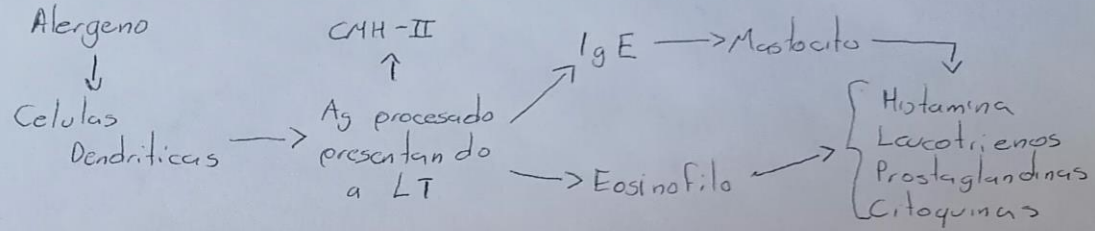 Alergeno
Celulas
Dendriticas
CMH-II
Ag procesado
presentando
a LT
IgE
Mastocito
Eosinofilo
Histamina
Leucotrienos
Prostaglandinas
Citoquinas